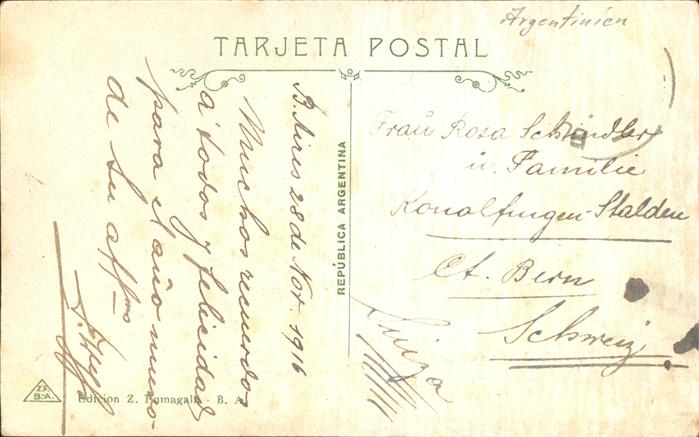 Argentinien
TARJETA POSTAL
B. Aires 28 de Nov. 1916
Muchos recuerdos
á todos y felicidad
para el año nuevo
de Su affmo
REPÚBLICA ARGENTINA
Frau Rosa Schindler
u. Familie
Konolfingen-Stalden
Ct. Bern
Schweiz
Suiza
Z.F.
B.A.
Edicion Z. Fumagalli - B. A.